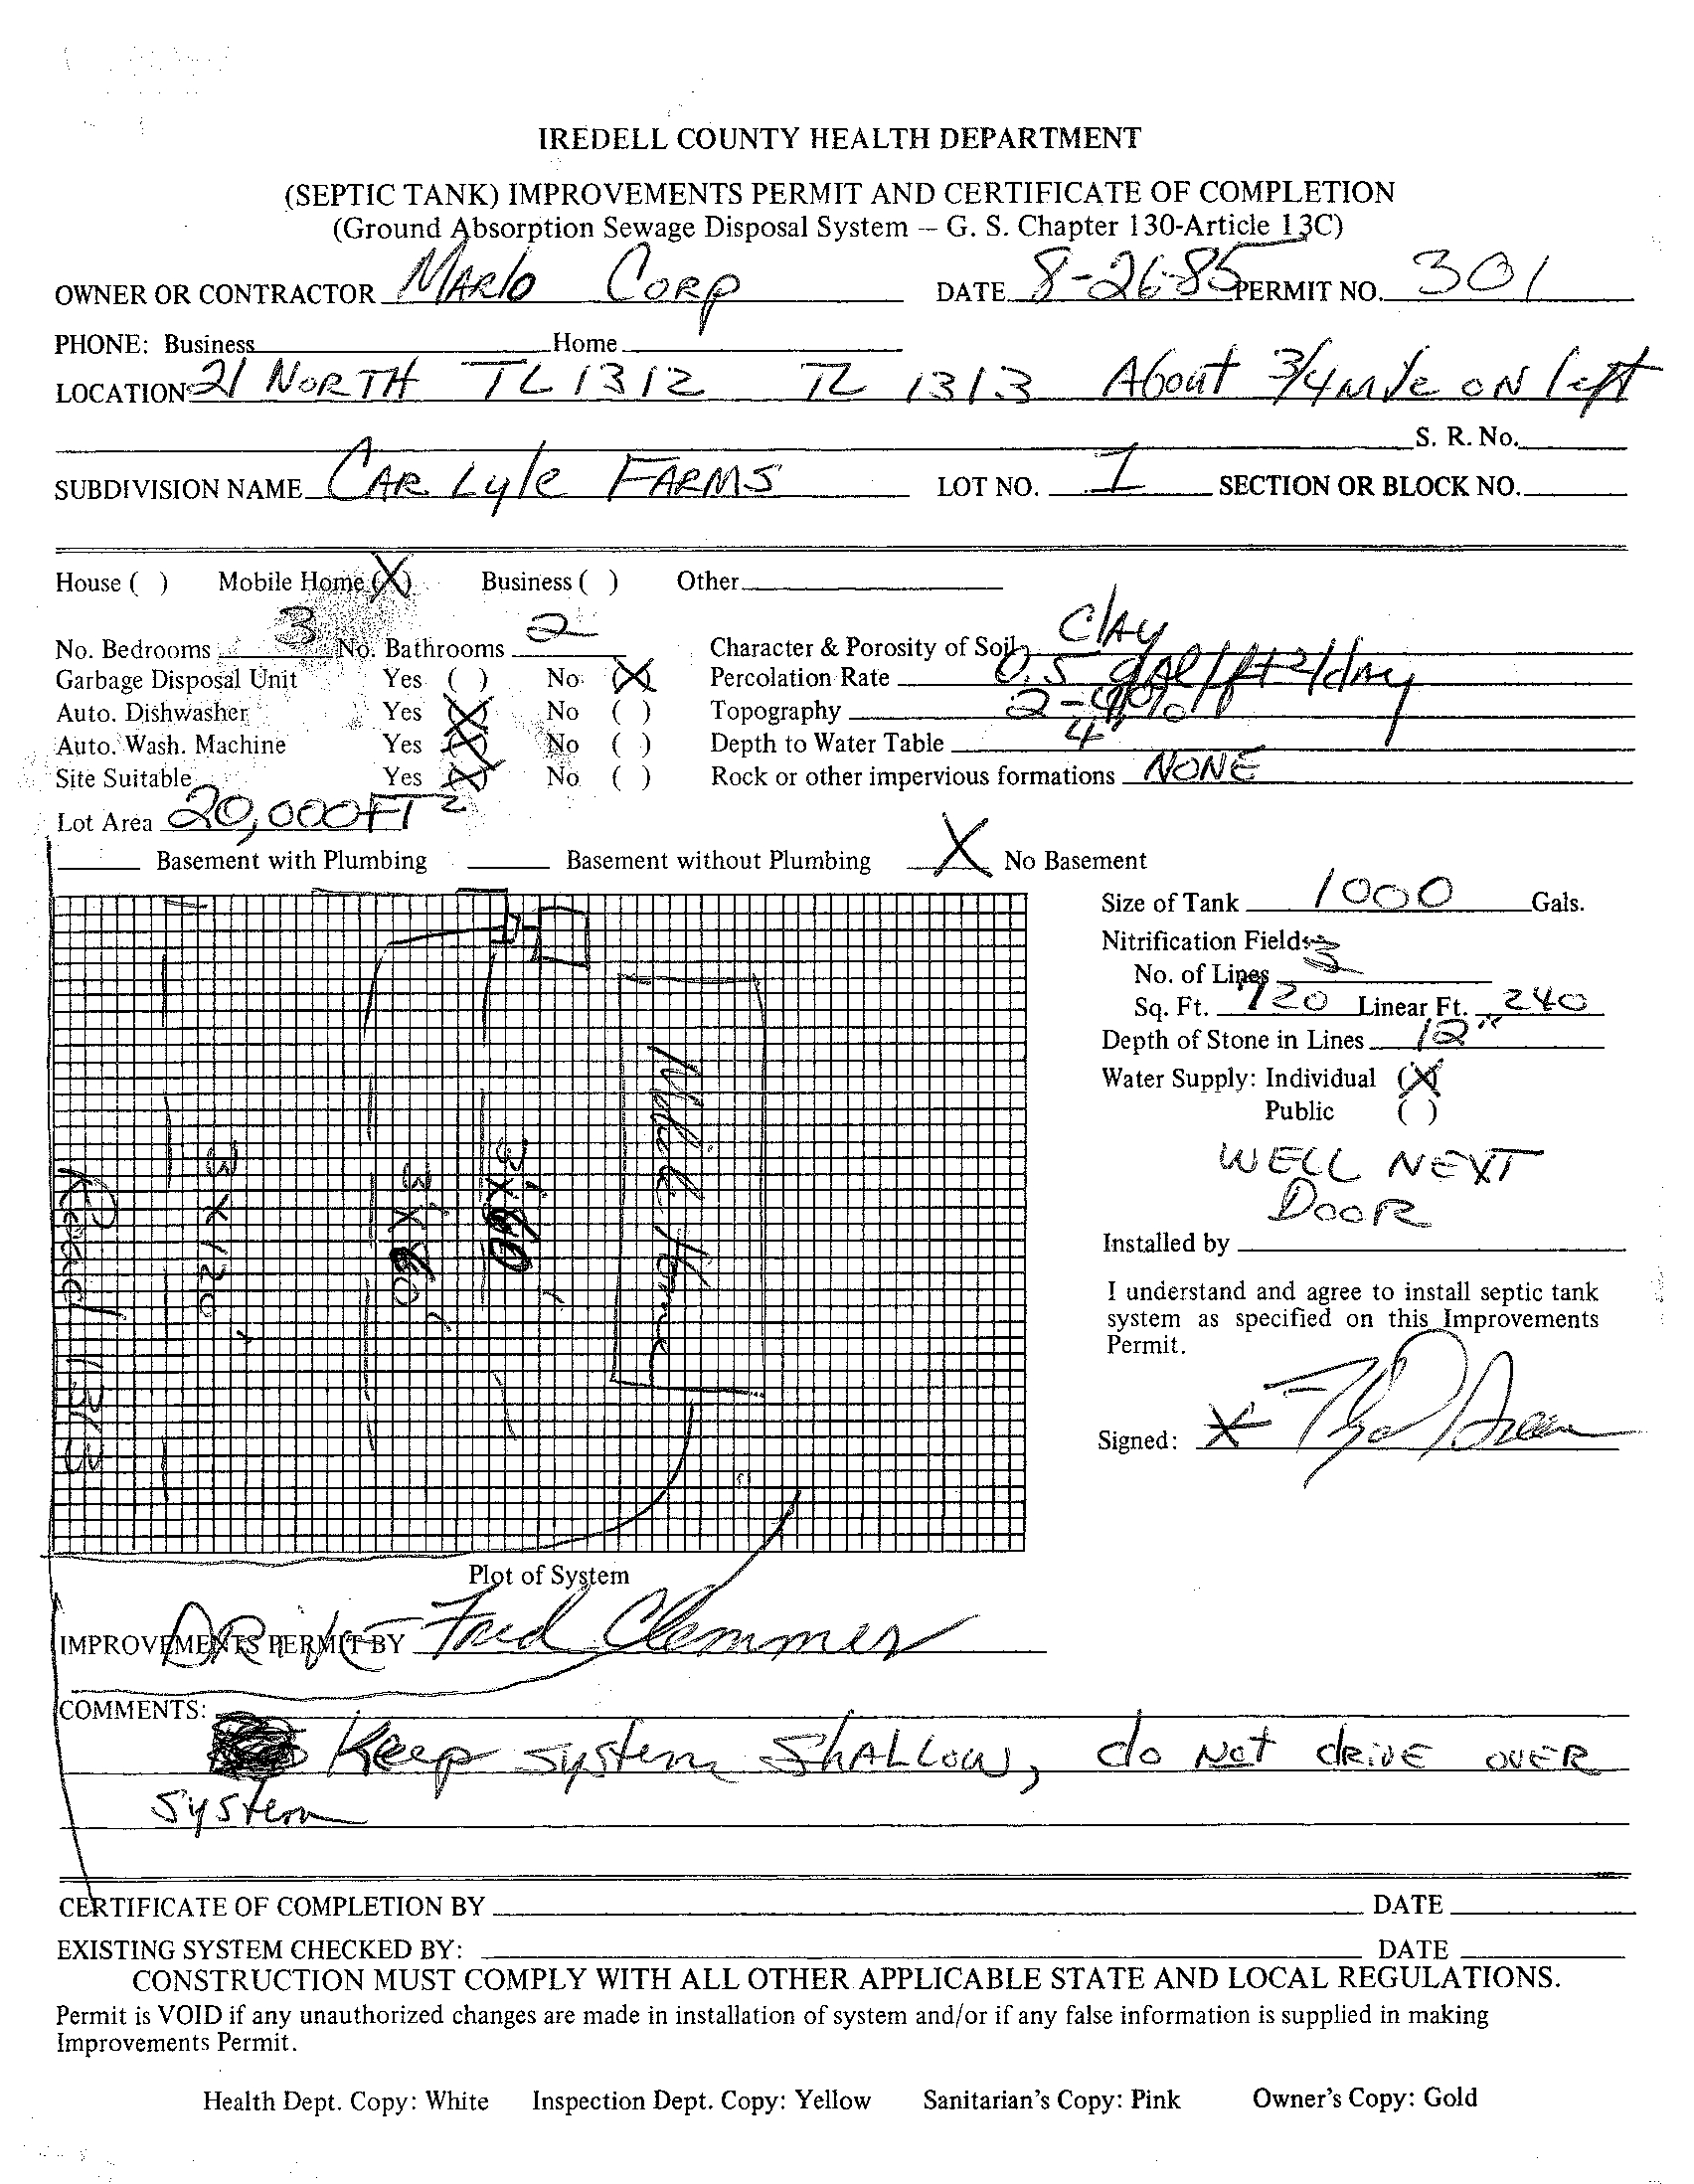 IREDELL COUNTY HEALTH DEPARTMENT
(SEPTIC TANK) IMPROVEMENTS PERMIT AND CERTIFICATE OF COMPLETION
(Ground Absorption Sewage Disposal System – G. S. Chapter 130-Article 13C)
OWNER OR CONTRACTOR MARlo CORP DATE 8-26-85 PERMIT NO. 301
PHONE: Business Home
LOCATION 21 NORTH TL 1312 TL 1313 About 3/4 mile ON left
S. R. No.
SUBDIVISION NAME CAR Lyle FARMS LOT NO. 1 SECTION OR BLOCK NO.
House ( ) Mobile Home (X) Business ( ) Other
No. Bedrooms 3 No. Bathrooms 2 Character & Porosity of Soil ClAy
Garbage Disposal Unit Yes ( ) No (X) Percolation Rate 0.5 gAl/ft2/dAy
Auto. Dishwasher Yes (X) No ( ) Topography 2-4%
Auto. Wash. Machine Yes (X) No ( ) Depth to Water Table 4'
Site Suitable Yes (X) No ( ) Rock or other impervious formations NONE
Lot Area 20,000 FT2
Basement with Plumbing Basement without Plumbing X No Basement
Size of Tank 1000 Gals.
Nitrification Field:
No. of Lines 3
Sq. Ft. 720 Linear Ft. 240
Depth of Stone in Lines 12"
Water Supply: Individual (X)
Public ( )
WELL NEXT
DOOR
Road 1313
3 X 120'
3' X 60'
3' X 60'
Mobile Home
Installed by
I understand and agree to install septic tank
system as specified on this Improvements
Permit.
Signed: X
Plot of System
DRIVE
IMPROVEMENTS PERMIT BY Fred Clemmer
COMMENTS:
Keep system ShALLow, do Not dRiVE OVER
System
CERTIFICATE OF COMPLETION BY DATE
EXISTING SYSTEM CHECKED BY: DATE
CONSTRUCTION MUST COMPLY WITH ALL OTHER APPLICABLE STATE AND LOCAL REGULATIONS.
Permit is VOID if any unauthorized changes are made in installation of system and/or if any false information is supplied in making
Improvements Permit.
Health Dept. Copy: White Inspection Dept. Copy: Yellow Sanitarian's Copy: Pink Owner's Copy: Gold